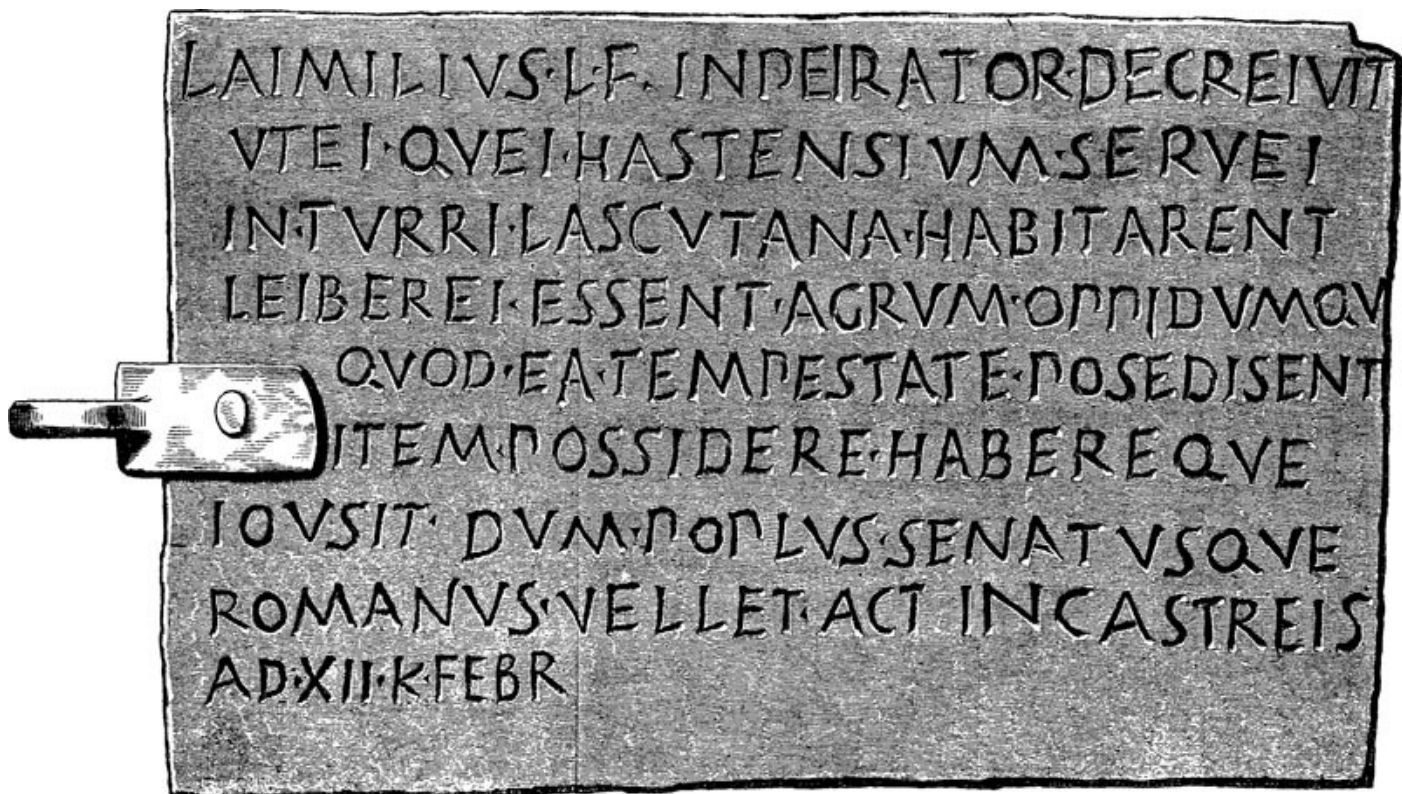 LAIMILIVS·L·F·INPEIRATOR·DECREIVIT
VTEI·QVEI·HASTENSIVM·SERVEI
IN·TVRRI·LASCVTANA·HABITARENT
LEIBEREI·ESSENT·AGRVM·OPPIDVMQV
QVOD·EA·TEMPESTATE·POSEDISENT
ITEM·POSSIDERE·HABEREQVE
IOVSIT·DVM·POPLVS·SENATVSQVE
ROMANVS·VELLET·ACT INCASTREIS
AD·XII·K·FEBR